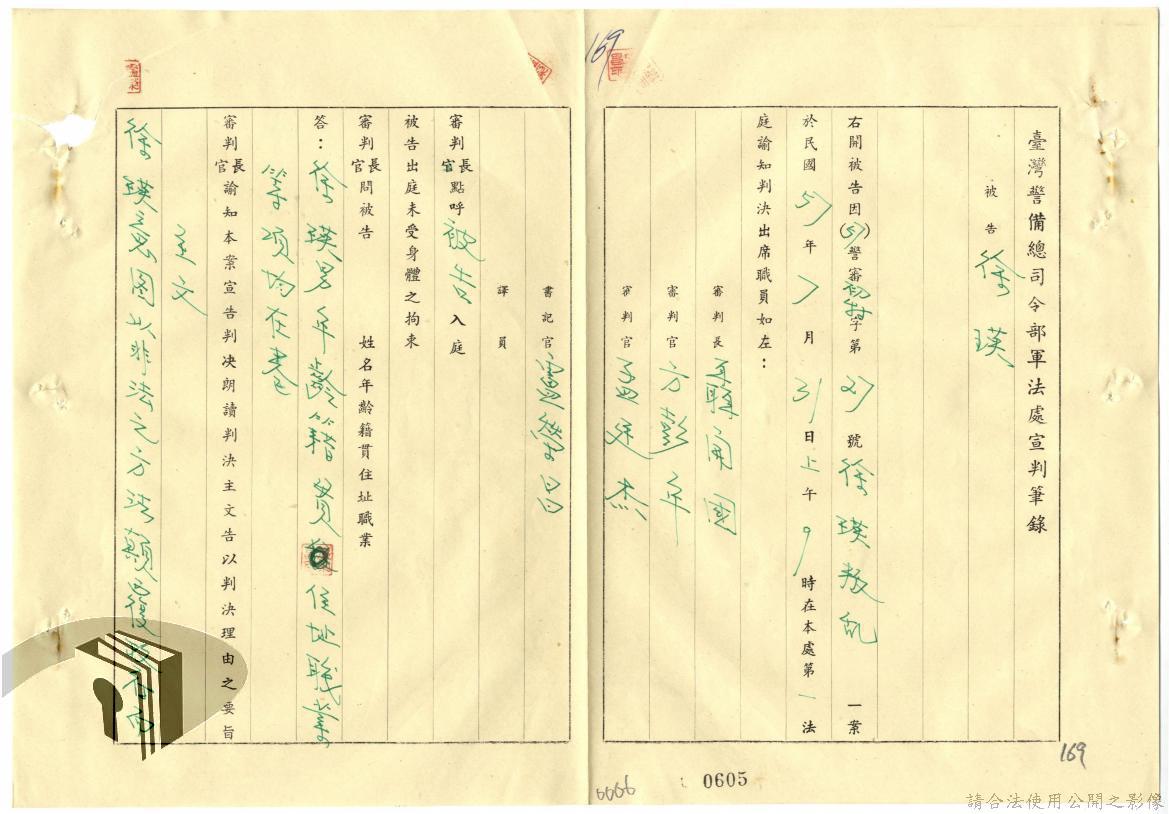 臺灣警備總司令部軍法處宣判筆錄
被告 徐瑛
右開被告因(57)警審初特字第27號徐瑛叛乱一案
於民國57年7月31日上午9時在本處第一法
庭諭知判決出席職員如左：
審判長 聶開國
審判官 方彭年
審判官 孟廷杰
書記官
譯員
審判長官點呼被告入庭
被告出庭未受身體之拘束
審判長官問被告 姓名年齡籍貫住址職業
答：徐瑛男年齡籍貫住址職業
等項均在卷
審判長官諭知本案宣告判决朗讀判決主文告以判决理由之要旨
主文
徐瑛意圖以非法之方法顛覆政府而
169
169
0605
0066
請合法使用公開之影像